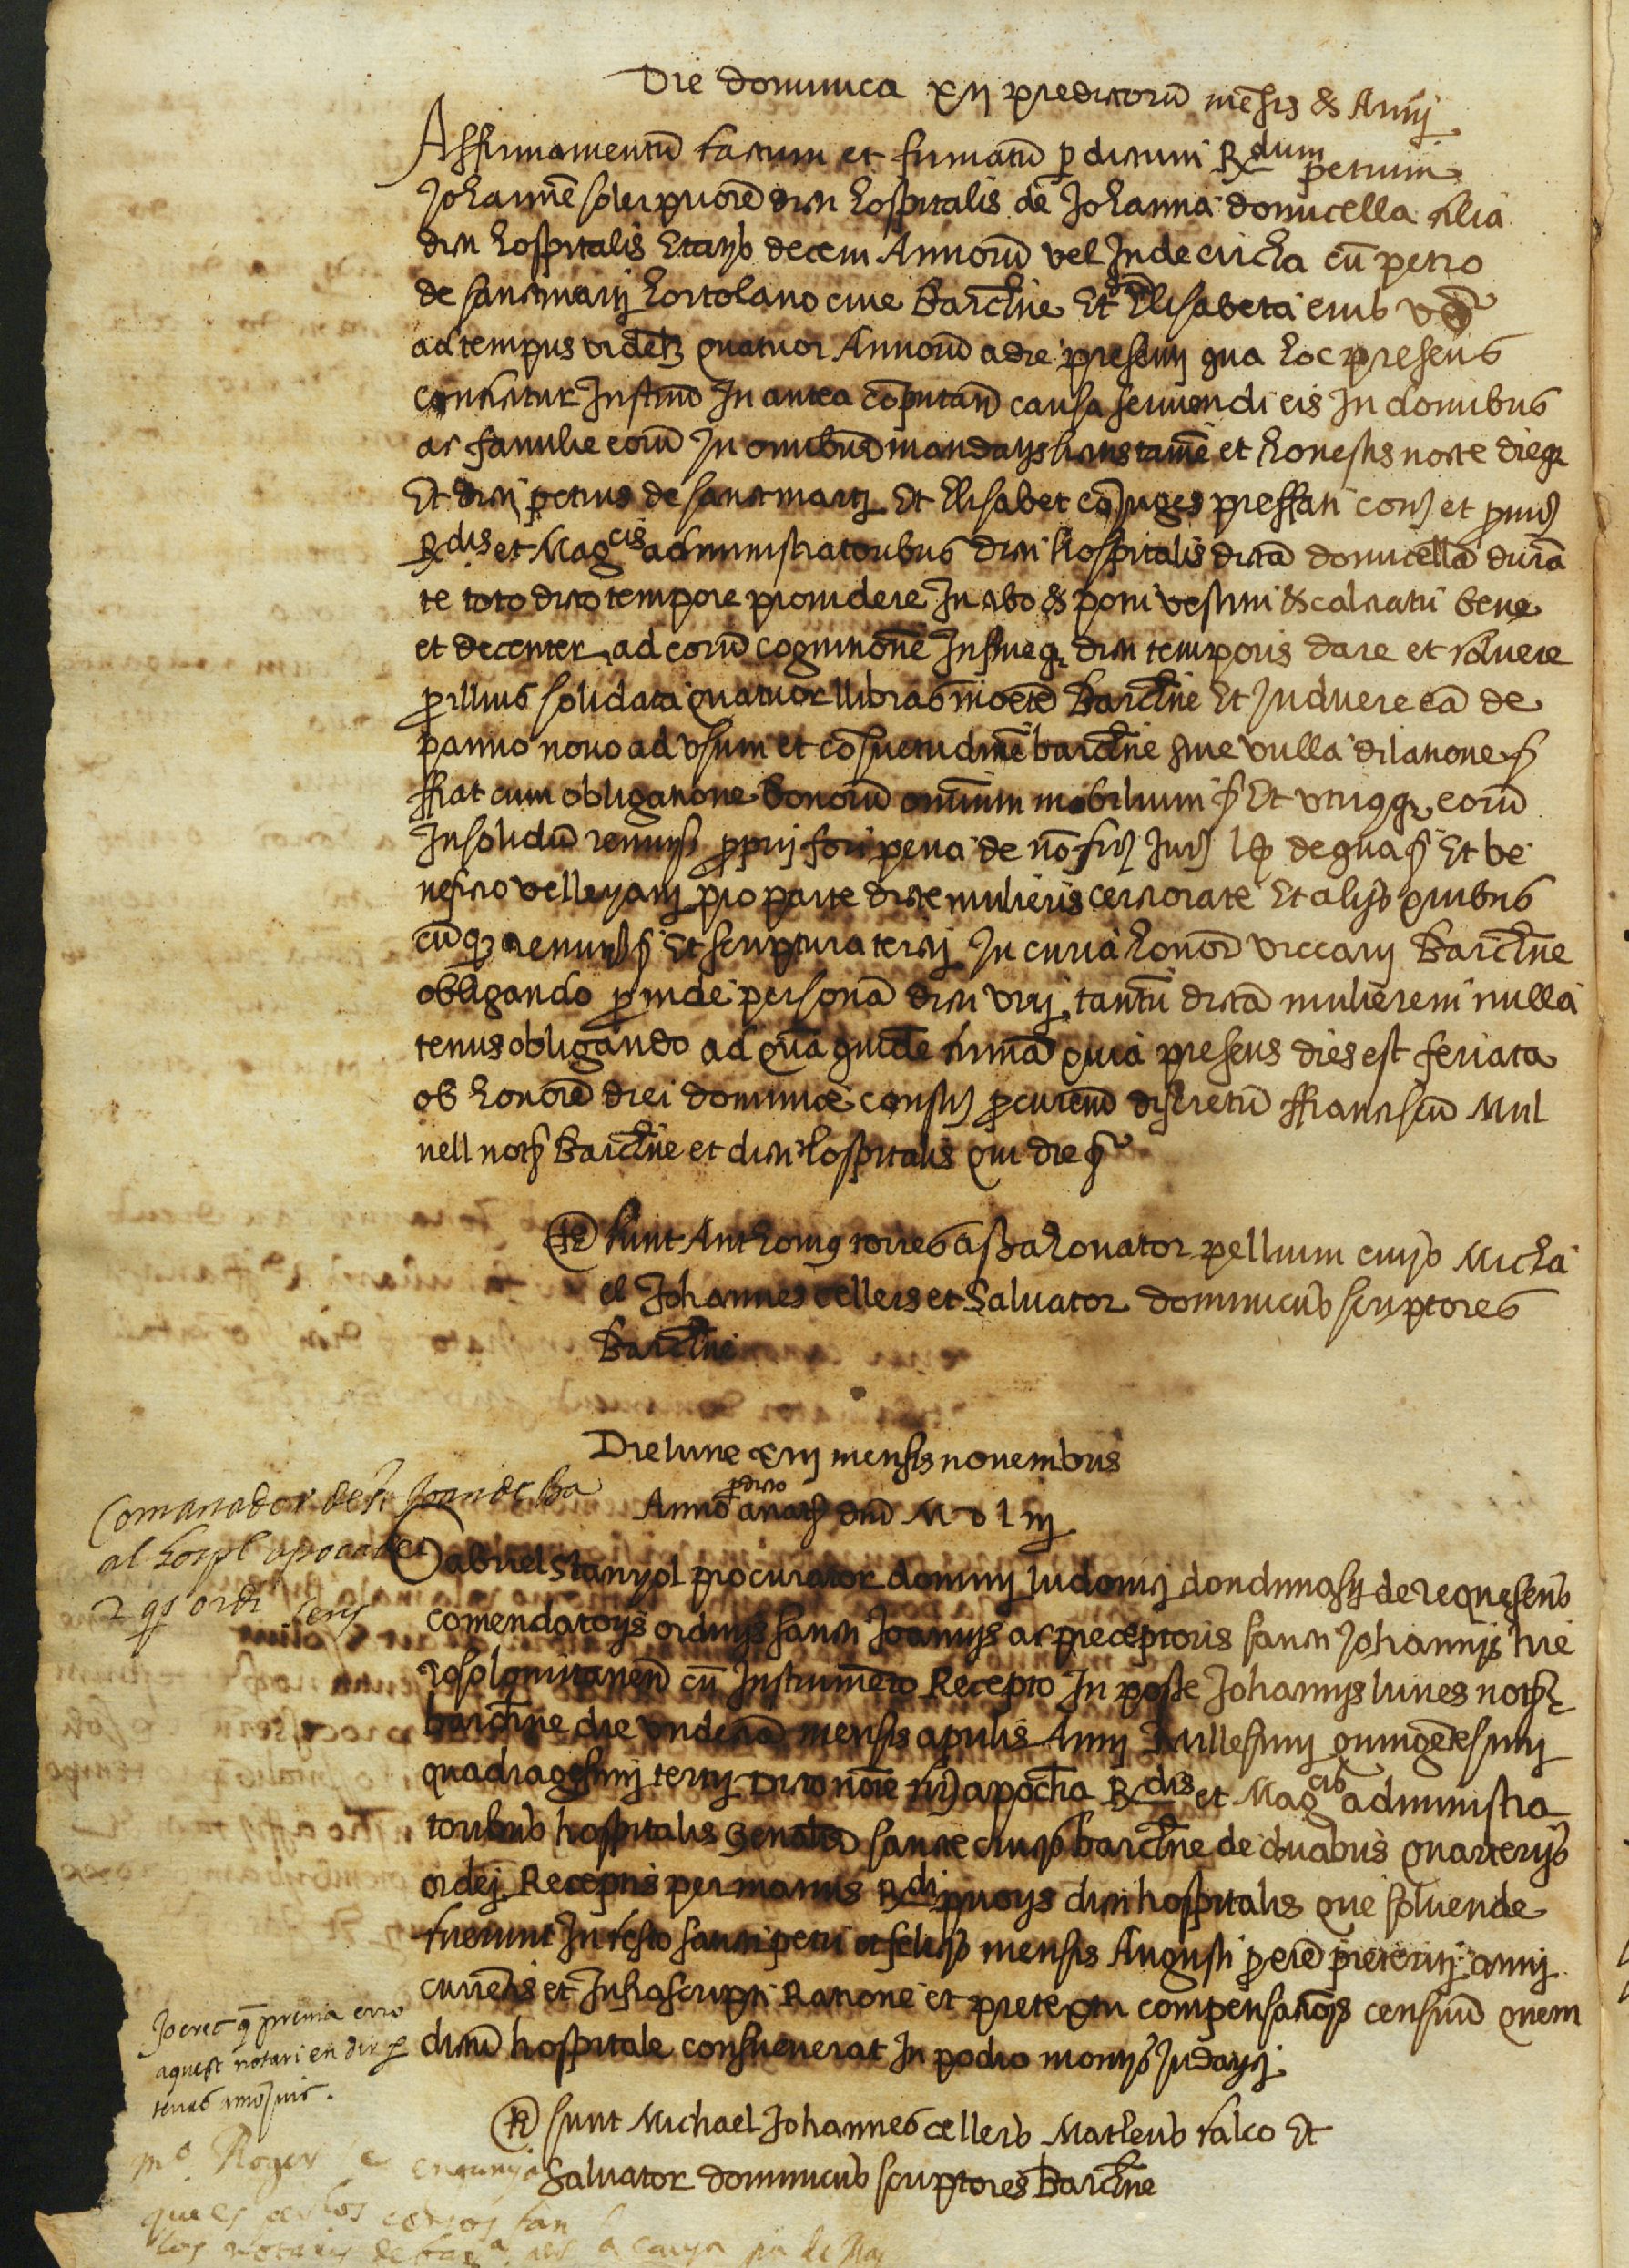 Die dominica xii predictorū mēsis & Anni
Affirmamentū factum et firmatū p dictum Rdum petrum
Johannē soler priorē dicti hospitalis de Johanna domicella filia
dicti hospitalis Etatis decem Annorū vel Inde circha cū petro
de sanctmarti hortolano cive Barchne Et dna Elisabeta eius vxe
ad tempus videlz quatuor Annorū a die presenti qua hoc presens
conficitur Instm̄ In antea cōputan̄ causa seruiendi eis In domibus
ac familie eorū In omībus mandatis licitis tamē et honestis nocte dieq
Et dicti petrus de sanctmarti Et Elisabet cōiuges preffati conv et promit
Rdis et Magcis administratoribus dicti hospitalis dictā domicellā durā
te toto dicto tempore prouidere In cibo & potu vestitu & calciatu bene
et decenter ad eorū cognitionē In fineq dicti temporis dare et soluere
p illius solidata quatuor llibras monete Barchne Et Induere eā de
panno nouo ad vsum et cōsuetudinē barchne sine vulla dilatione &
ffiat cum obligatione bonorū omnium mobilium & Et vtriusq eorū
Insolidū renunt proprii fori pena de nō fir Jur l̄p de qua & Et be
neficio velleyani pro parte dicte mulieris certiorate Et aliis quibus
cūq renunt & Et scriptura tercii In curia honor viccarii Barchne
obligando p inde personā dicti viri tantū dictā mulierem nulla
tenus obligando ad quā quidē firmā quia presens dies est feriata
ob honorē diei dominice constit procurem̄ discretū ffranciscū Mul
nell noty Barchne et dicti hospitalis qui die &
Te sunt Anthonius torres assahonator pellium civis Micha
el Johannes cellers et Saluator dominicus scriptores
Barchne
Die lune xiii mensis nouembris
Anno predicto a natiē dni M D l iii
Comanador de st Joan de ba
al hospl apoca de
2 qs ordi cens
Gabriel Stanyol procurator domini ludouici dondimasii de requesens
comendatoris ordinis sancti Joannis ac preceptoris sancti Johannis hie
rosolomitanen̄ cū Instrumēto Recepto In posse Johannis lunes noty
barchne die vndecia mensis aprilis Anni Millesimi quingētesimi
quadragesimi tercii Dicto noīe fir apocha Rdis et Magcis administra
toribus hospitalis Generalis sancte crucis barchne de duabus quarteriis
ordei Receptis per manus Rdi prioris dicti hospitalis que soluende
fuerunt In festo sancti petri et felicis mensis Augusti p̄ere preteriti anni
currentis et Infrascripti Ratione et pretextu compensatōis censuū quem
dictū hospitale consueuerat In podio montis Judayci
Jo crec q̄ prenia erro
aquest notari en dir p
terras amo Juic.
Te sunt Michael Johannes cellers Matheus falco Et
Saluator dominicus scriptores Barchne
mo Roger se enganya
que es per los censos fan
los notaris de bara